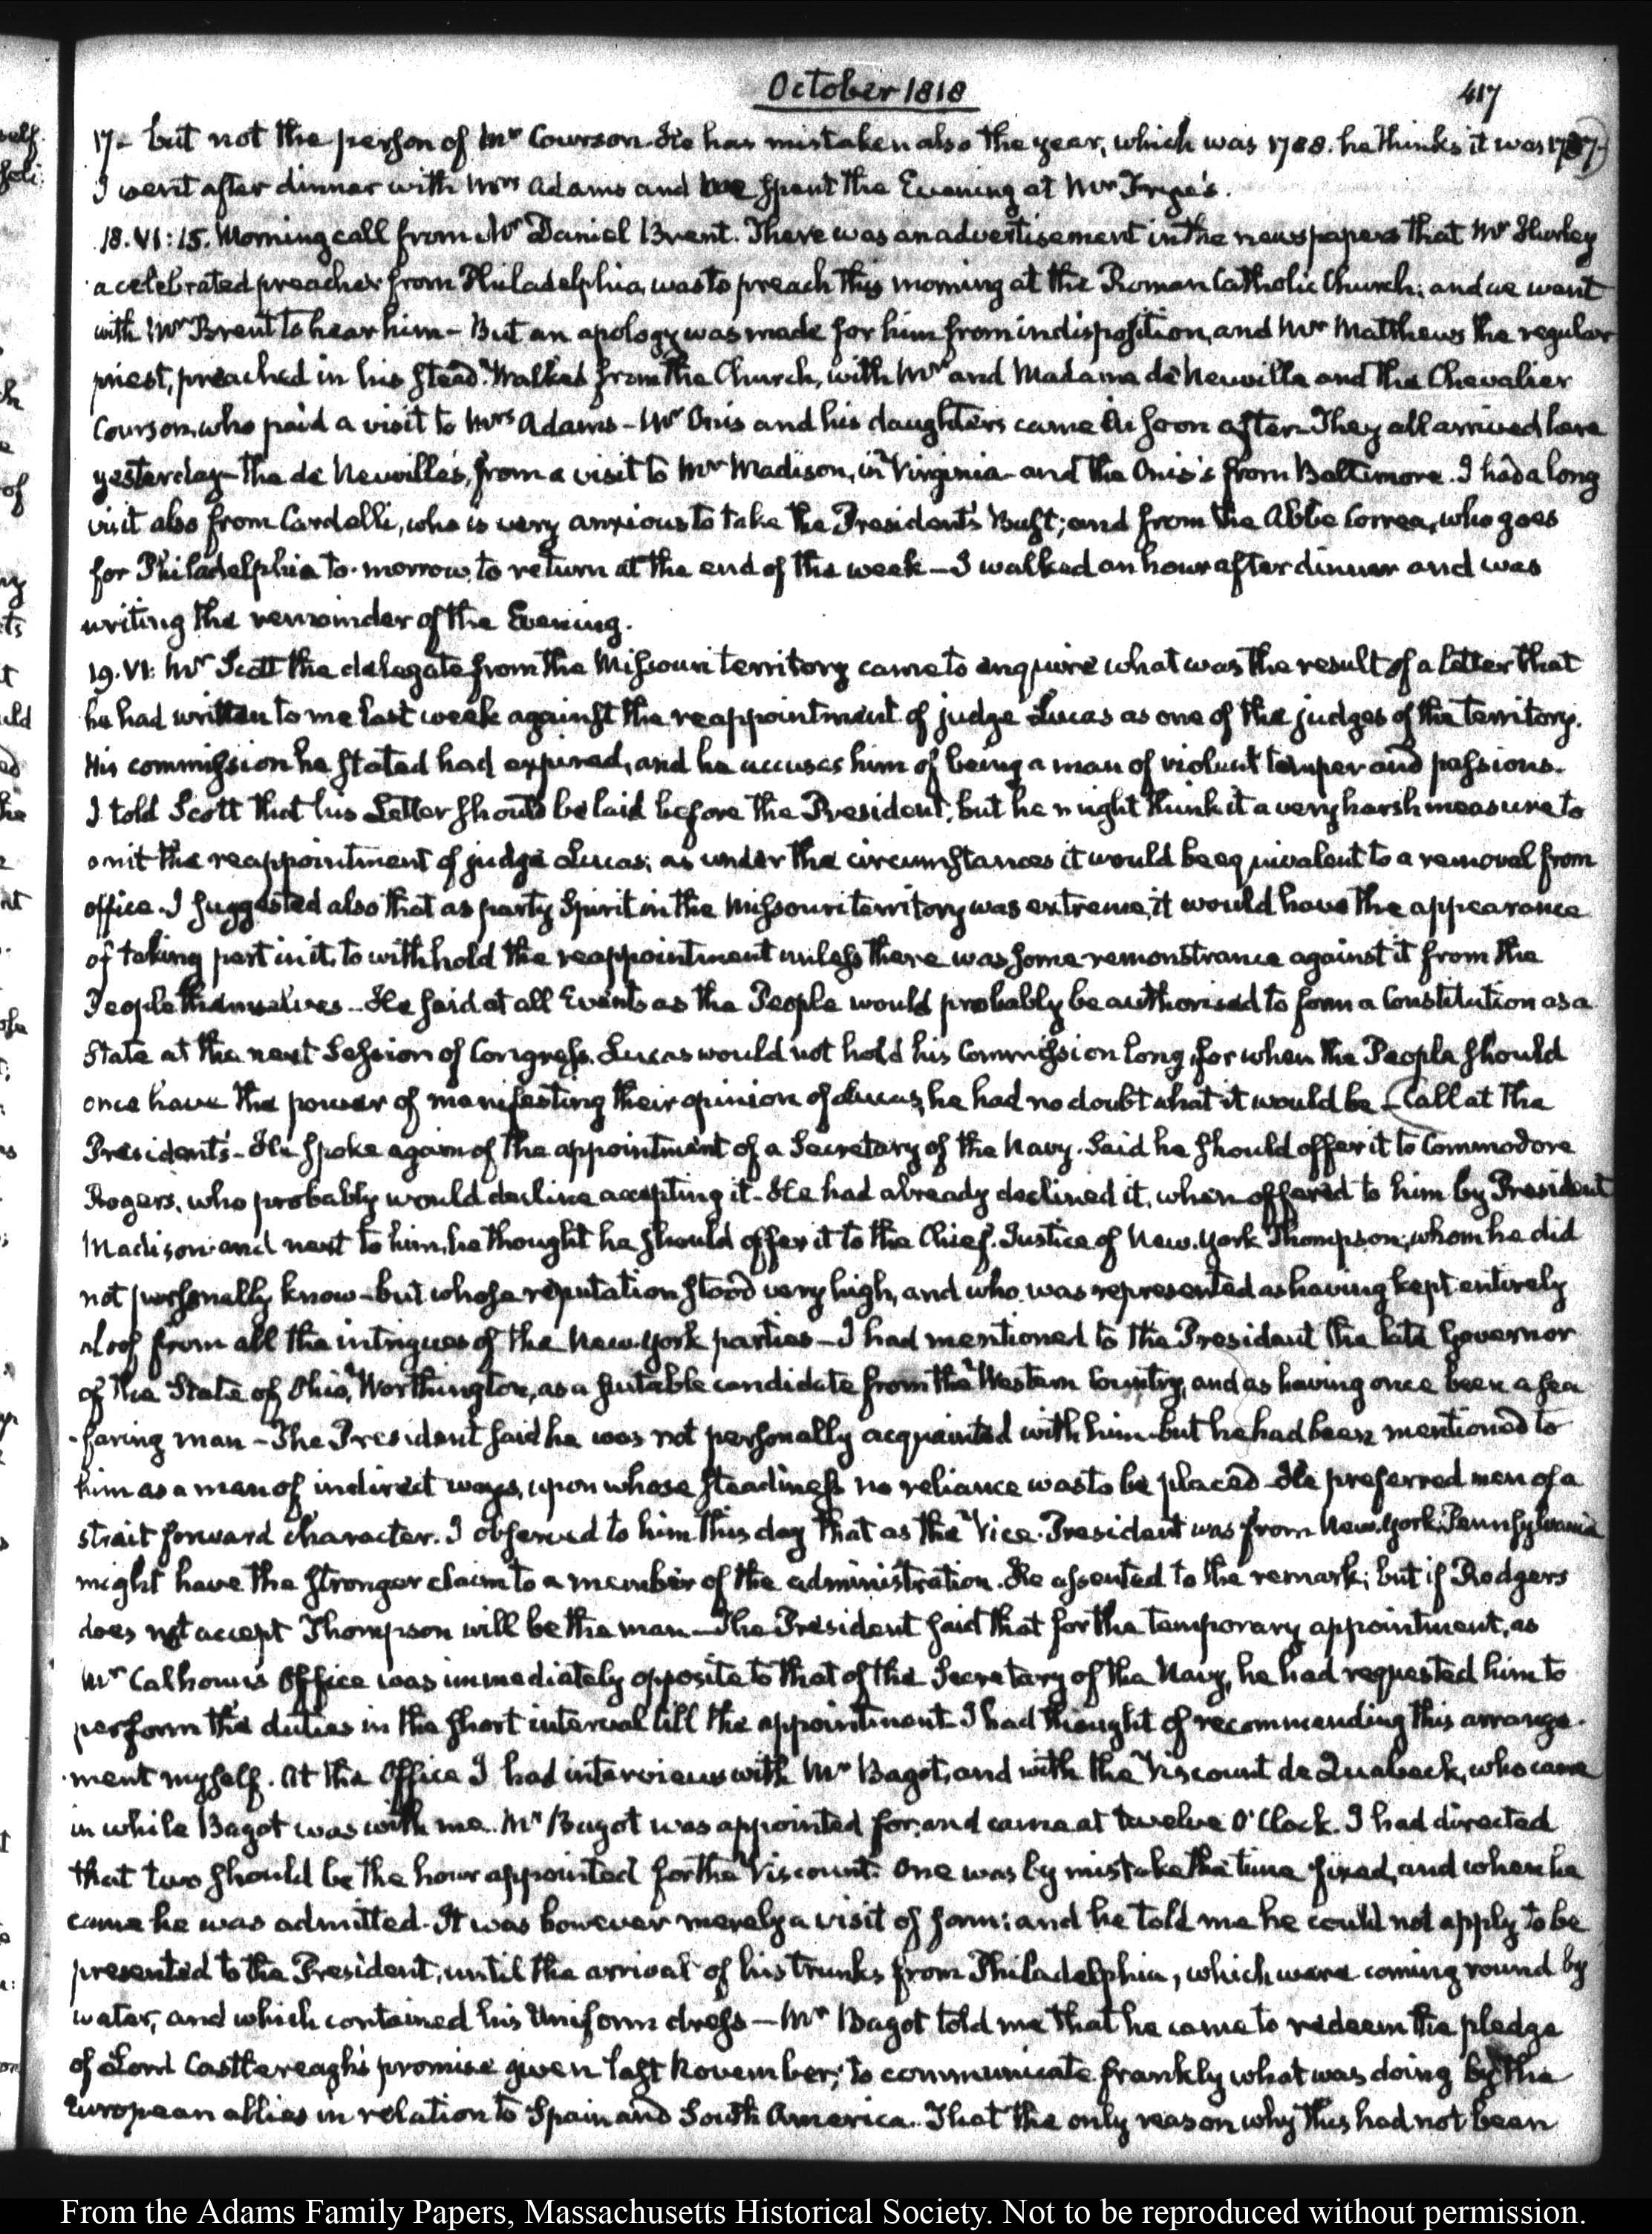 October 1818
417
17- but not the person of Mr Courson. He has mistaken also the year, which was 1788. he thinks it was 1787-
I went after dinner with Mrs Adams and we spent the Evening at Mr Frye's.
18. VI:15. Morning call from Mr Daniel Brent. There was an advertisement in the newspapers that Mr Hurley
a celebrated preacher from Philadelphia, was to preach this morning at the Roman Catholic Church; and we went
with Mr Brent to hear him- But an apology was made for him from indisposition, and Mr Matthews the regular
priest, preached in his stead. Walked from the Church, with Mr and Madame de Neuville and the Chevalier
Courson, who paid a visit to Mrs Adams- Mr Onis and his daughters came in soon after- They all arrived here
yesterday- the de Neuville's, from a visit to Mr Madison, in Virginia- and the Onis's from Baltimore. I had a long
visit also from Cardelli, who is very anxious to take the President's Bust; and from the Abbe Correa, who goes
for Philadelphia to-morrow, to return at the end of the week- I walked an hour after dinner and was
writing the remainder of the Evening.
19. VI: Mr Scott the delegate from the Missouri territory came to enquire what was the result of a letter that
he had written to me last week against the reappointment of judge Lucas as one of the judges of the territory.
His commission he stated had expired, and he accuses him of being a man of violent temper and passions.
I told Scott that his Letter should be laid before the President, but he might think it a very harsh measure to
omit the reappointment of judge Lucas; as under the circumstances it would be equivalent to a removal from
office. I suggested also that as party Spirit in the Missouri territory was extreme, it would have the appearance
of taking part in it, to withhold the reappointment unless there was some remonstrance against it from the
People themselves- He said at all Events as the People would probably be authorised to form a Constitution as a
State at the next Session of Congress, Lucas would not hold his Commission long, for when the People should
once have the power of manifesting their opinion of Lucas, he had no doubt what it would be- Call at the
President's- He spoke again of the appointment of a Secretary of the Navy. Said he should offer it to Commodore
Rogers, who probably would decline accepting it- He had already declined it, when offered to him by President
Madison and next to him, he thought he should offer it to the Chief-Justice of New-York Thompson, whom he did
not personally know- but whose reputation stood very high, and who was represented as having kept entirely
aloof from all the intrigues of the New-York parties- I had mentioned to the President the late Governor
of the State of Ohio, Worthington, as a suitable candidate from the Western Country, and as having once been a sea
-faring man- The President said he was not personally acquainted with him- but he had been mentioned to
him as a man of indirect ways, upon whose steadiness no reliance was to be placed- He preferred men of a
strait forward character. I observed to him this day that as the Vice-President was from New-York, Pennsylvania
might have the stronger claim to a member of the administration. He assented to the remark; but if Rodgers
does not accept Thompson will be the man- The President said that for the temporary appointment, as
Mr Calhoun's Office was immediately opposite to that of the Secretary of the Navy, he had requested him to
perform the duties in the short interval till the appointment- I had thought of recommending this arrange-
-ment myself. At the Office I had interviews with Mr Bagot, and with the Viscount de Quabeck, who came
in while Bagot was with me. Mr Bagot was appointed for, and came at twelve O'Clock. I had directed
that two should be the hour appointed for the Viscount. One was by mistake the time fixed, and when he
came he was admitted. It was however merely a visit of form; and he told me he could not apply to be
presented to the President, until the arrival of his trunks from Philadelphia, which were coming round by
water, and which contained his Uniform dress- Mr Bagot told me that he came to redeem the pledge
of Lord Castlereagh's promise given last November, to communicate frankly what was doing by the
European allies in relation to Spain and South America. That the only reason why this had not been
From the Adams Family Papers, Massachusetts Historical Society. Not to be reproduced without permission.